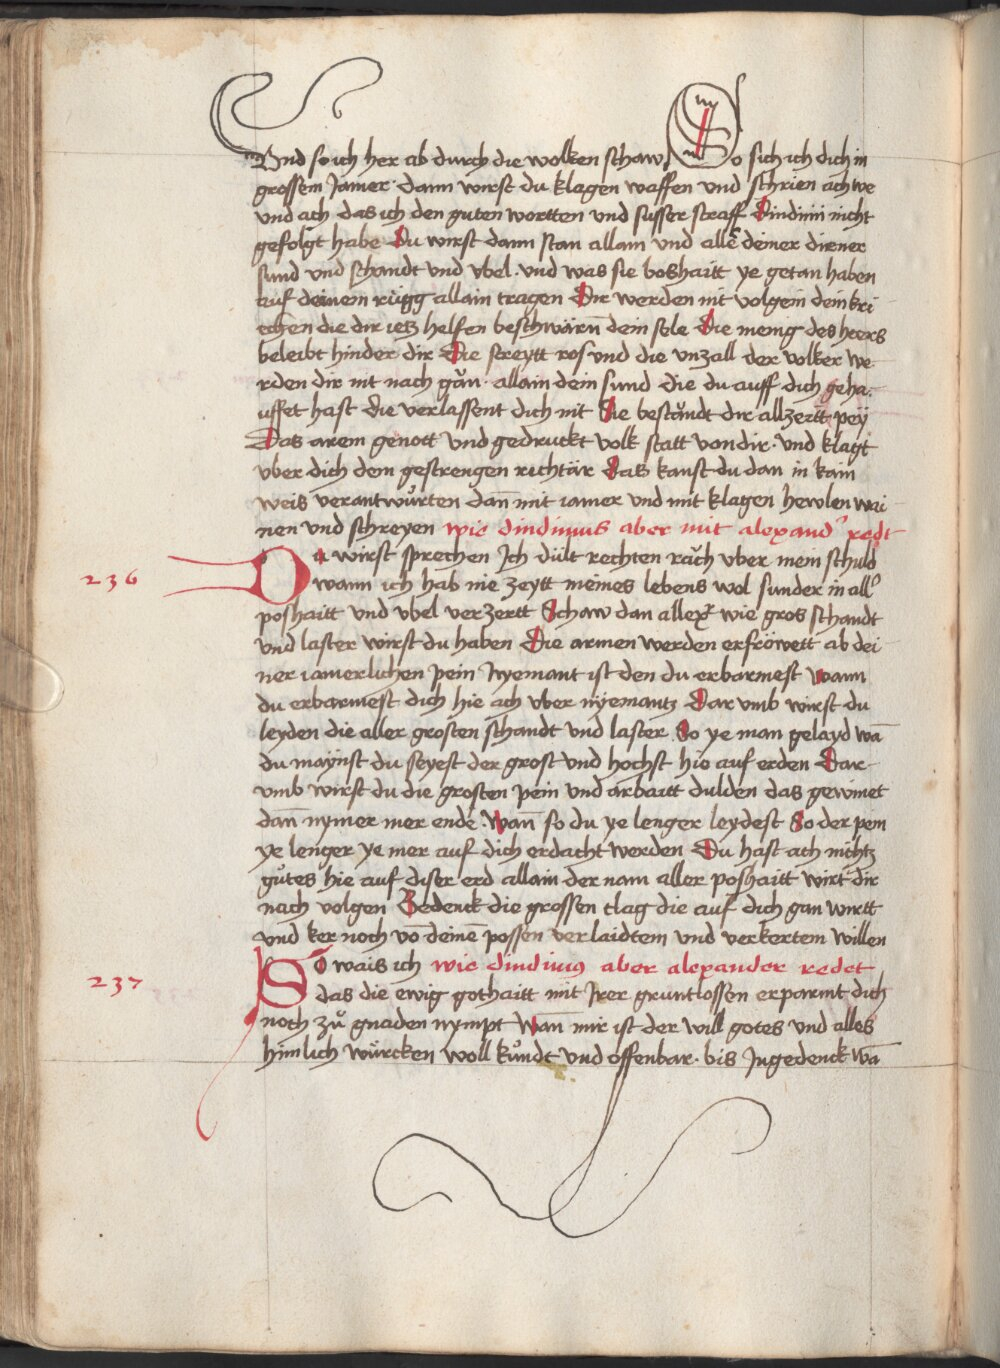 Vnd so ich her ab durch die wolken schaw So sich ich dich in
grossem Jamer · dann wirst du klagen waffen vnd schrien ach we
vnd ach das ich den guten wortten vnd susser straff dindimi nicht
gefolgt habe Du wirst dann stan allain vnd allē deiner diener
sund vnd schandt vnd vbel · vnd was sie boshaitt ye getan haben
auf deinem rügg allain tragen Dir werden nit volgem dem kri
echen die dir ietz helfen beschwärn̄ dein sele Die menig des heers
beleibt hinder dir Die streytt ros · vnd die vnzall der volker we
rden dir nit nach gån · allain dein sund die du auff dich geha
uffet hast die verlassent dich nit Sie beståndt dir allzeitt pey
Das arem genött vnd gedruckt volk statt von dir · vnd klagt
vber dich dem gestrengen richtär Das kanst du dan in kain
weis verantwůrten dan̄ mit iamer vnd mit klagen hewlen wai
nen vnd schreyen wie dindimus aber mit alexand' redt
236 Da wirst sprechen Ich dült rechten rach vber mein schuld
wann ich hab nie zeytt meines lebens wol sunder in all'
poshaitt vnd vbel verzertt Schaw dan allex' wie gros schandt
vnd laster wirst du haben Die armen werden erfröwett ab dei
ner iamerlichen pein Nyemant ist den du erbarmest wann
du erbarmest dich hie ach vber nÿemantz Dar vmb wirst du
leyden die aller grosten schandt vnd laster So ye man gelayd wā
du maynst du seyest der grost vnd hochst hie auf erden Dar
vmb wirst du die grosten pein vnd arbaitt dulden das gewinet
dan̄ nymer mer ende · Wan̄ so du ye lenger leydest So der pein
ye lenger ye mer auf dich erdacht werden Du hast ach nichtz
gůtes hie auf diser erd allain der nam aller poshaitt wirt dir
nach volgen Bedenck die grossen clag die auf dich gan wirtt
vnd ker noch vō deinē possen verlaidtem vnd verkertem willen
237 So wais ich wie dindimus aber alexander redet
das die ewig gothaitt mit Irer gruntlossen erparmt dich
noch zů gnaden nympt Wan̄ mir ist der will gotes vnd alles
himlich würcken woll kůndt vnd offenbar · bis Ingedenck wā